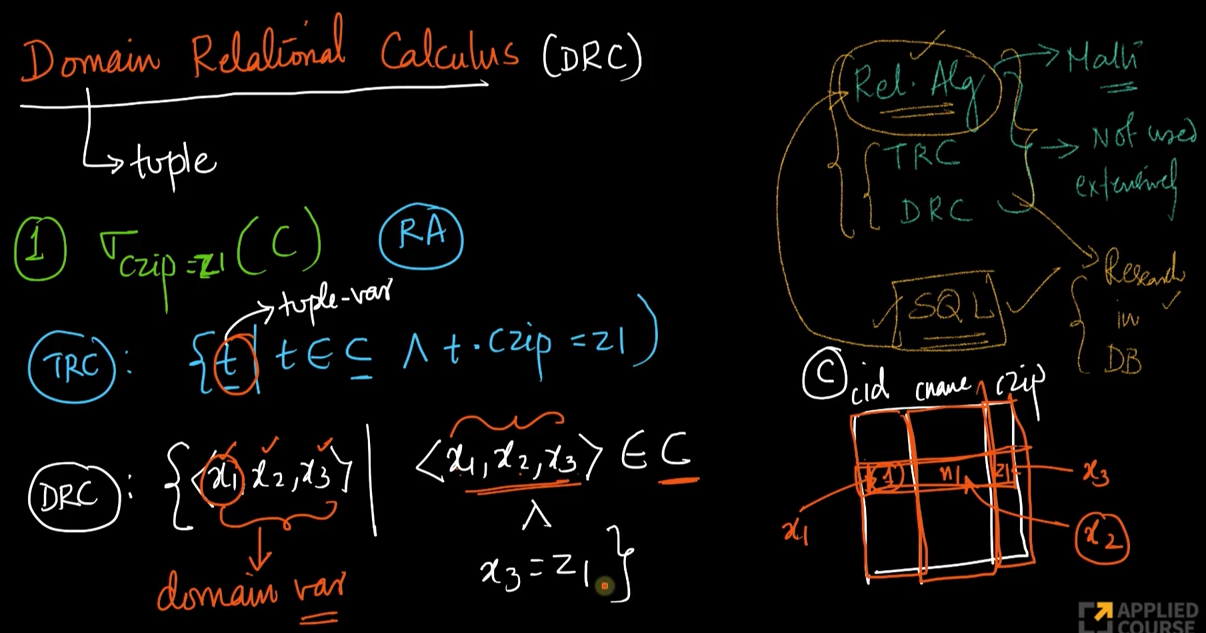 Domain Relational Calculus (DRC)
tuple
1 σczip=z1(C) RA
tuple-var
TRC: {t | t ∈ C ∧ t.czip = z1)
DRC: {<x1, x2, x3> | <x1, x2, x3> ∈ C
∧
x3 = z1}
domain var
Rel. Alg
TRC
DRC
Math
Not used
extensively
SQL
Research
in
DB
C cid cname czip
n1 z1
x1 x3
x2
APPLIED
COURSE